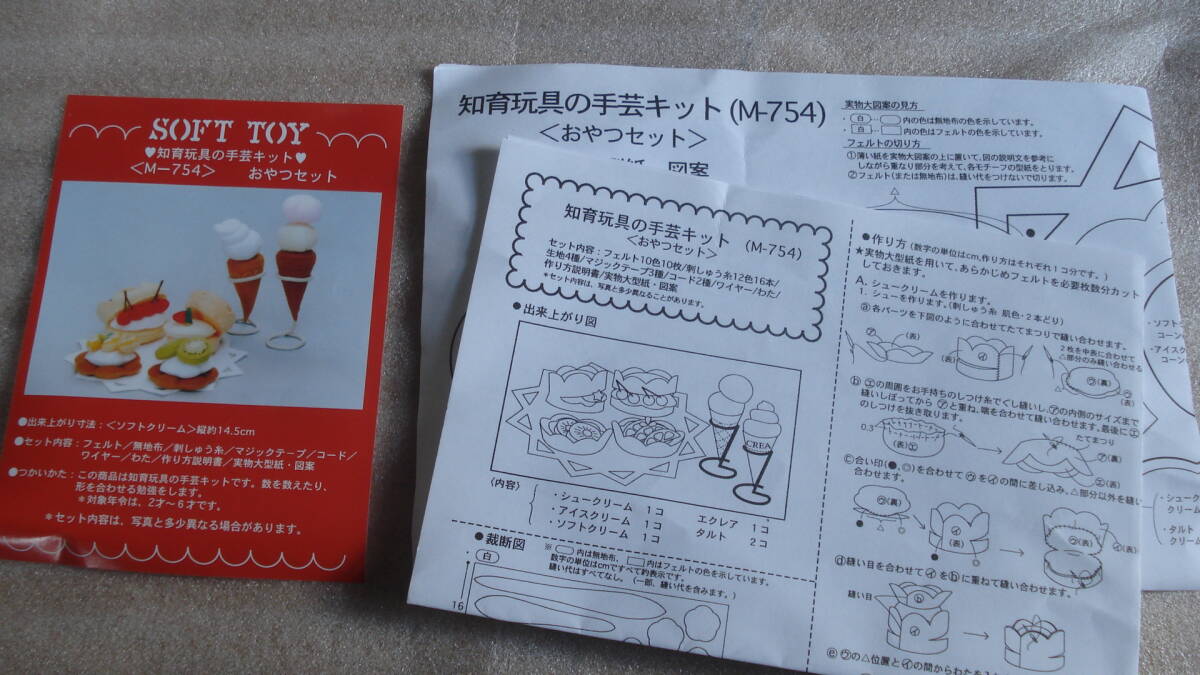 SOFT TOY
♥知育玩具の手芸キット♥
＜M－754＞ おやつセット
●出来上がり寸法：＜ソフトクリーム＞縦約14.5cm
●セット内容：フェルト／無地布／刺しゅう糸／マジックテープ／コード／
ワイヤー／わた／作り方説明書／実物大型紙・図案
●つかいかた：この商品は知育玩具の手芸キットです。数を数えたり、
形を合わせる勉強をします。
＊対象年令は、2才～6才です。
＊セット内容は、写真と多少異なる場合があります。
知育玩具の手芸キット(M-754)
＜おやつセット＞
図案
実物大図案の見方
・白…内の色は無地布の色を示しています。
・白…内の色はフェルトの色を示しています。
フェルトの切り方
①薄い紙を実物大図案の上に置いて、図の説明文を参考に
しながら重なり部分を考えて、各モチーフの型紙をとります。
②フェルト(または無地布)は、縫い代をつけないで切ります。
・ソフト
コーン
・アイス
コー
・シュー
クリーム
・タルト
クリーム
知育玩具の手芸キット (M-754)
＜おやつセット＞
セット内容：フェルト10色10枚/刺しゅう糸12色16本/
生地4種/マジックテープ3種/コード2種/ワイヤー/わた/
作り方説明書/実物大型紙・図案
＊セット内容は、写真と多少異なることがあります。
●出来上がり図
CREA
〈内容〉
・シュークリーム 1コ エクレア 1コ
・アイスクリーム 1コ タルト 2コ
・ソフトクリーム 1コ
●裁断図
※内は無地布、内はフェルトの色を示しています。
数字の単位はcmですべて約表示です。
縫い代はすべてなし。(一部、縫い代を含みます。)
白
16
●作り方 (数字の単位はcm,作り方はそれぞれ1コ分です。)
★実物大型紙を用いて、あらかじめフェルトを必要枚数分カット
しておきます。
A. シュークリームを作ります。
1. シューを作ります。(刺しゅう糸 肌色・2本どり)
ⓐ各パーツを下図のように合わせてたてまつりで縫い合わせます。
㋐
(表)
(表)
㋑
2枚を中表に合わせて
△部分のみ縫い合わせる
㋒(裏)
㋒
(表)
ⓑ㋓の周囲をお手持ちのしつけ糸でぐし縫いし、㋐の内側のサイズまで
縫いしぼってから㋐と重ね、端を合わせて縫い合わせます。最後に㋓
のしつけを抜き取ります。
0.3
(表)㋓
たてまつり
㋐(裏)
㋓(表)
ⓒ合い印(●,◎)を合わせて㋒を㋑の間に差し込み、△部分以外を縫い
合わせます。
㋒(裏)
㋑
(表)
㋒(表)
㋑(表)
ⓓ縫い目を合わせて㋑をⓑに重ねて縫い合わせます。
縫い目
ⓑ
㋑
ⓔ㋒の△位置と㋑の間からわたを